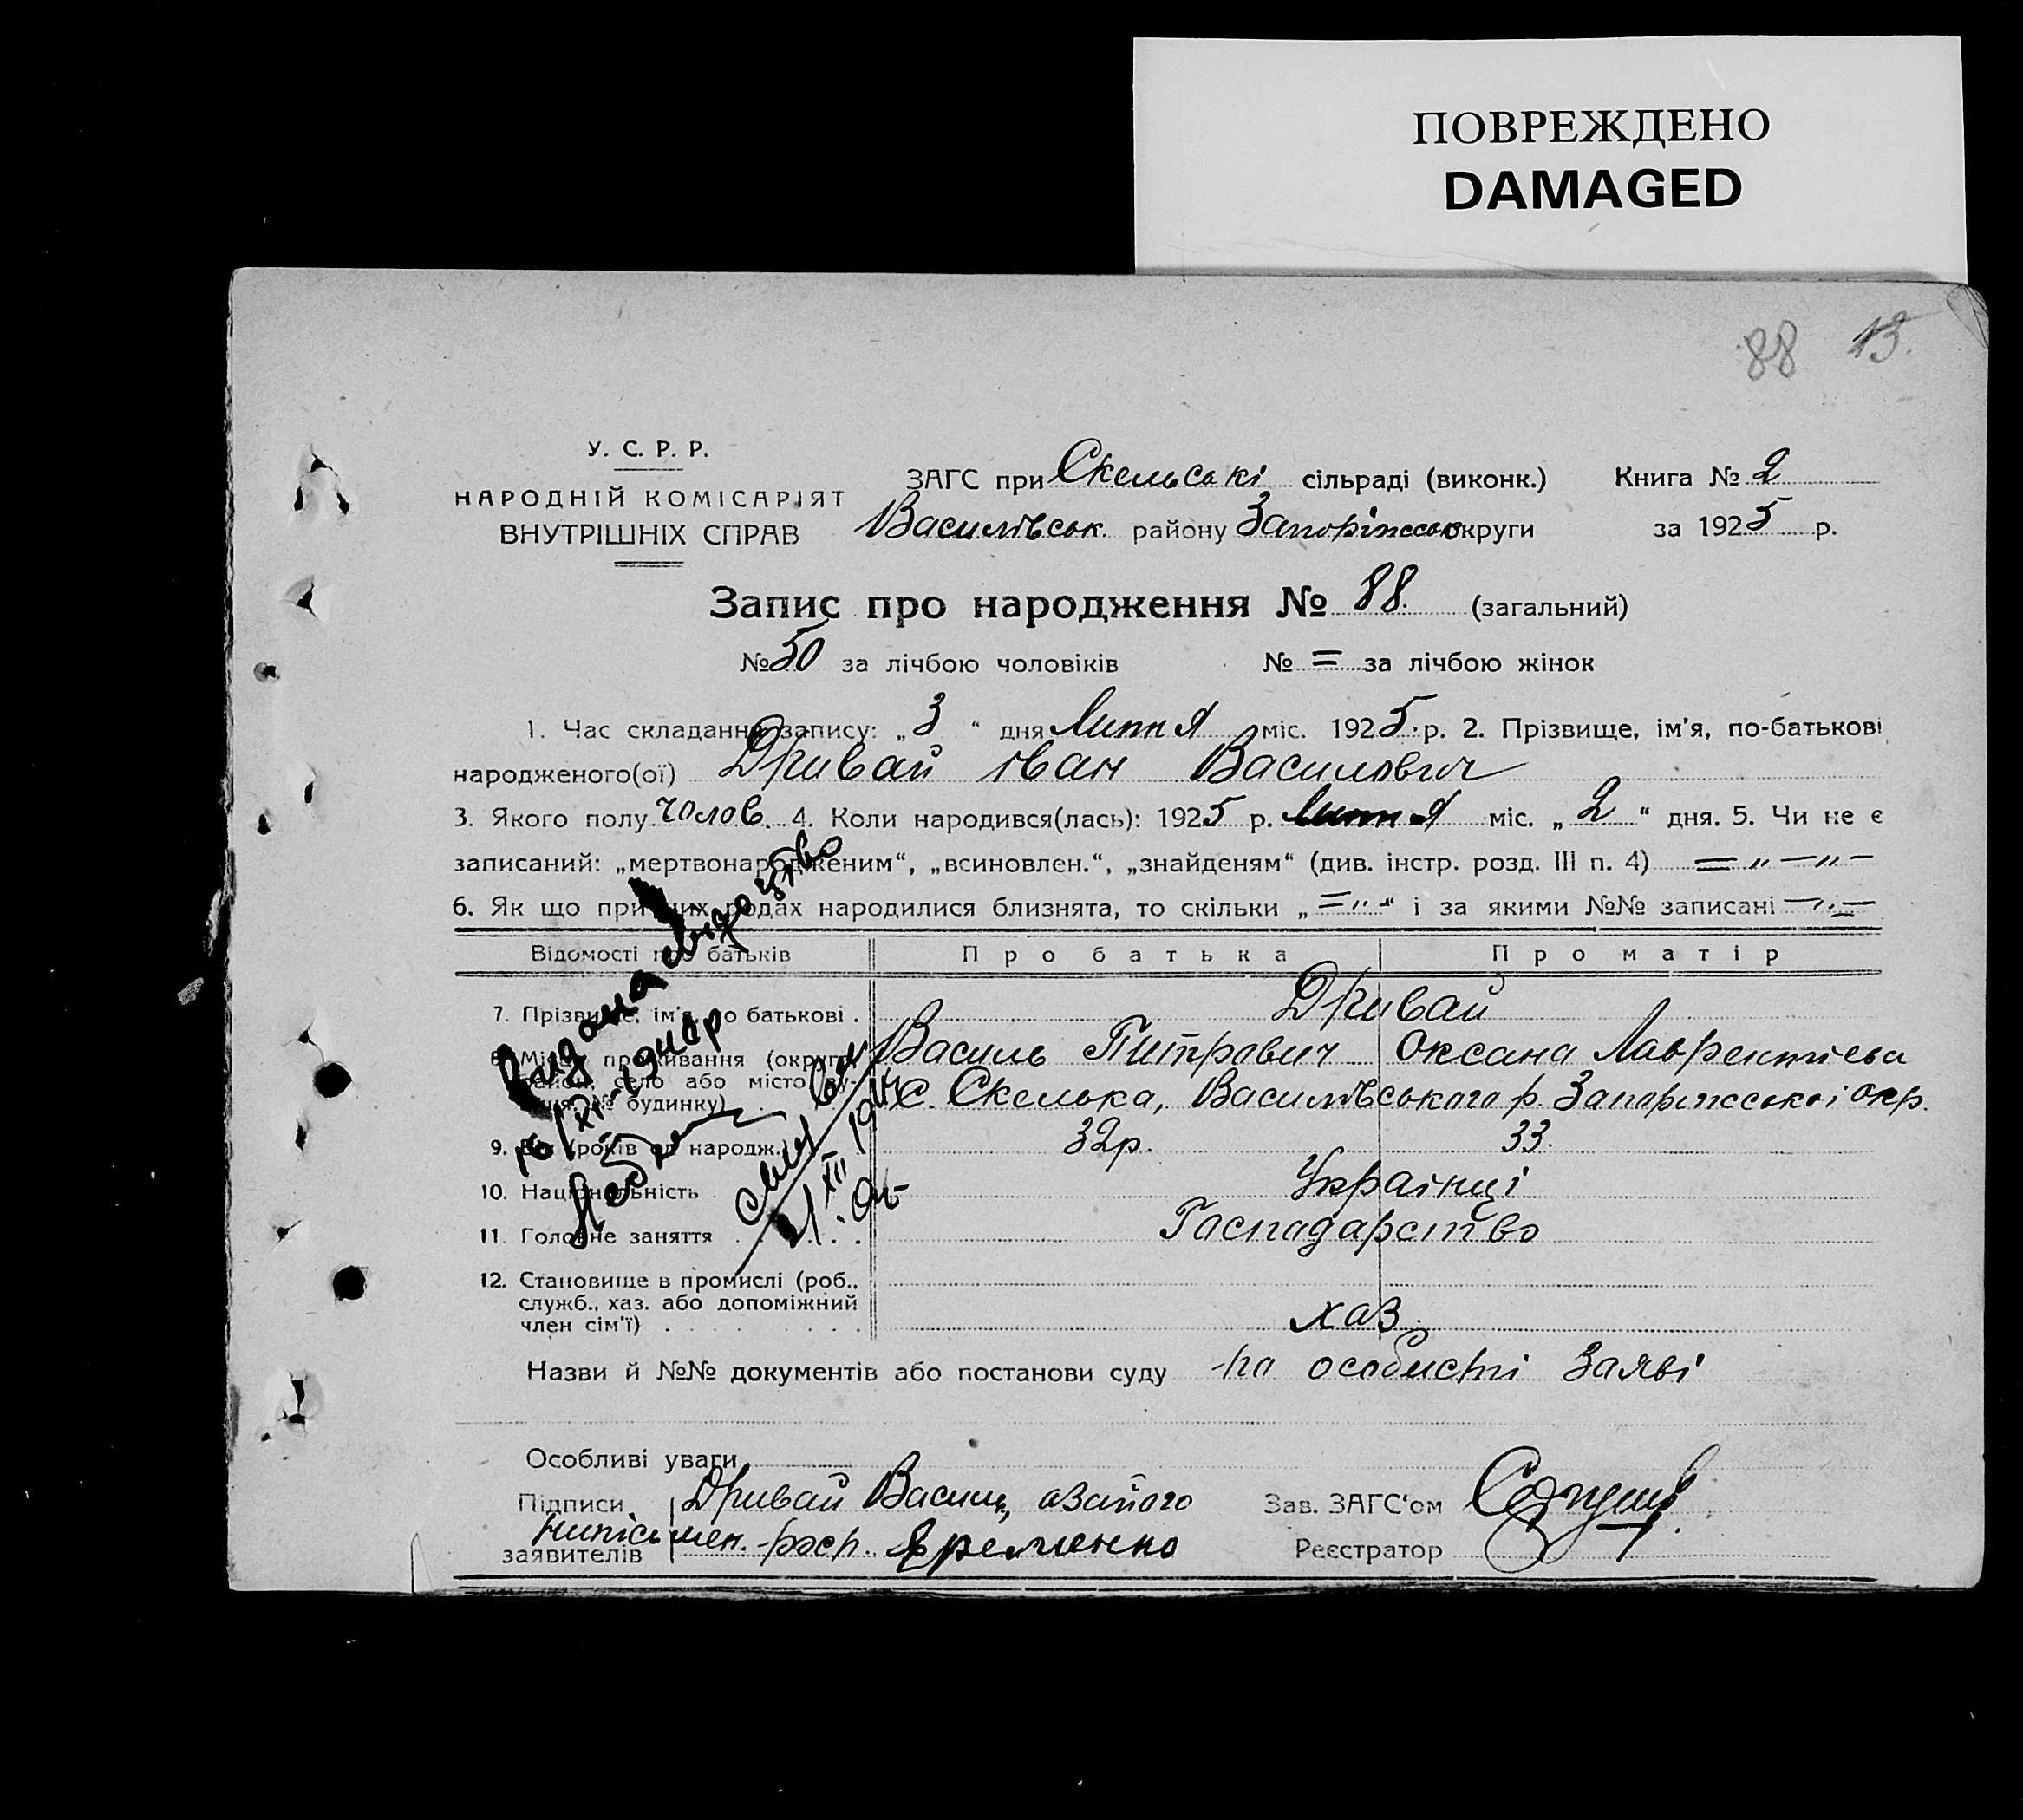 ПОВРЕЖДЕНО
DAMAGED
88 13.
У. С. Р. Р.
НАРОДНІЙ КОМІСАРІЯТ
ВНУТРІШНІХ СПРАВ
ЗАГС при Скельські сільраді (виконк.) Книга № 2
Василівськ. району Запоріжськ округи за 1925 р.
Запис про народження № 88. (загальний)
№ 50 за лічбою чоловіків № = за лічбою жінок
1. Час складання запису: „3“ дня Липня міс. 1925 р. 2. Прізвище, ім'я, по-батькові
народженого(ої) Дривай Іван Василович
3. Якого полу Чолов. 4. Коли народився(лась): 1925 р. Липня міс. „2“ дня. 5. Чи не є
записаний: „мертвонародженим“, „всиновлен.“, „знайденям“ (див. інстр. розд. III п. 4) = „ — „ —
6. Як що при цих родах народилися близнята, то скільки „ = „ “ і за якими №№ записані — „ —
Відомості про батьків Про батька Про матір
7. Прізвище, ім'я, по батькові . Дривай
Василь Питрович Оксана Лаврентіева
8. Місце проживання (округа,
район, село або місто, ву-
лиця, № будинку) . С. Скелька, Василівського р. Запоріжської окр.
9. Вік (років од народж.) 32р. 33.
10. Національність Українці
11. Головне заняття Господарство
12. Становище в промислі (роб.,
служб., хаз. або допоміжний
член сім'ї) хаз.
Видана
16/XI-19
21/XII 194
Назви й №№ документів або постанови суду -по особисті заяві
Особливі уваги
Підписи Дривай Васил, азайого
нипісьмен. росп. Яременно
заявителів
Зав. ЗАГС'ом
Реєстратор